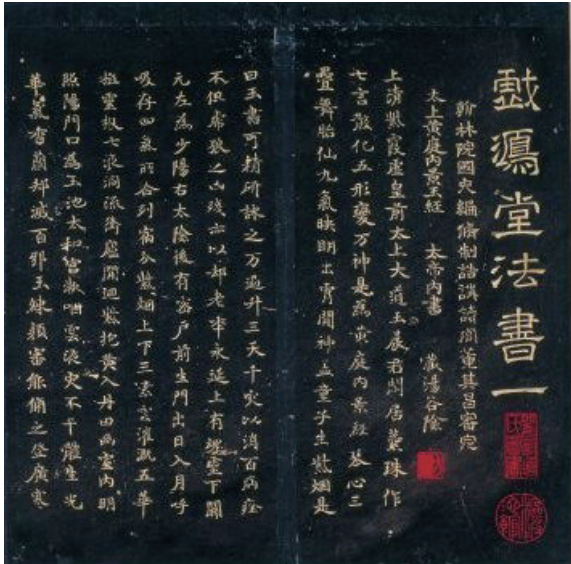 戲鴻堂法書一
翰林院國史編脩制誥講讀官董其昌審定
太上黃庭內景玉經 太帝內書 藏暘谷陰
上清紫霞虛皇前太上大道玉晨君閑居蘂珠作
七言散化五形變万神是為黃庭內景經琴心三
疊舞胎仙九氣映明出霄間神盖童子生紫煙是
曰玉書可精研詠之万遍升三天千灾以消百病痊
不憚虎狼之凶殘亦以却老年永延上有魂靈下關
元左為少陽右太陰後有密戶前生門出日入月呼
吸存四氣所合列宿分紫煙上下三素雲灌溉五華
植靈根七液洞流衝廬間迴紫抱黃入丹田幽室內明
照陽門口為玉池太和宮漱咽靈液灾不干體生光
華氣香蘭却滅百邪玉練顏審能脩之登廣寒